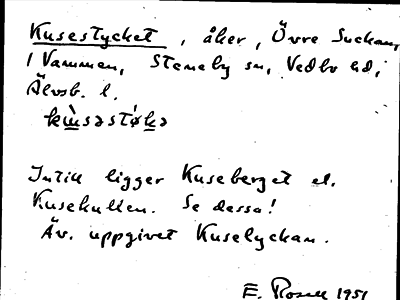 Kusestycket, åker, Övre Suckan,
1 Vammen, Steneby sn, Vedbo hd,
Älvsb. l.
kɯ̀sǝstǿkǝ
Intill ligger Kuseberget el.
Kusekullen. Se dessa!
Äv. uppgivet Kuselyckan.
E. Rosell 1951